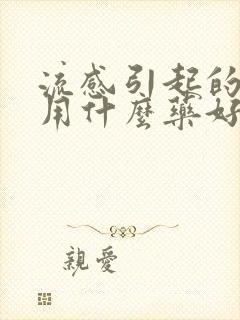 流感引起的
用什麼藥好
親愛